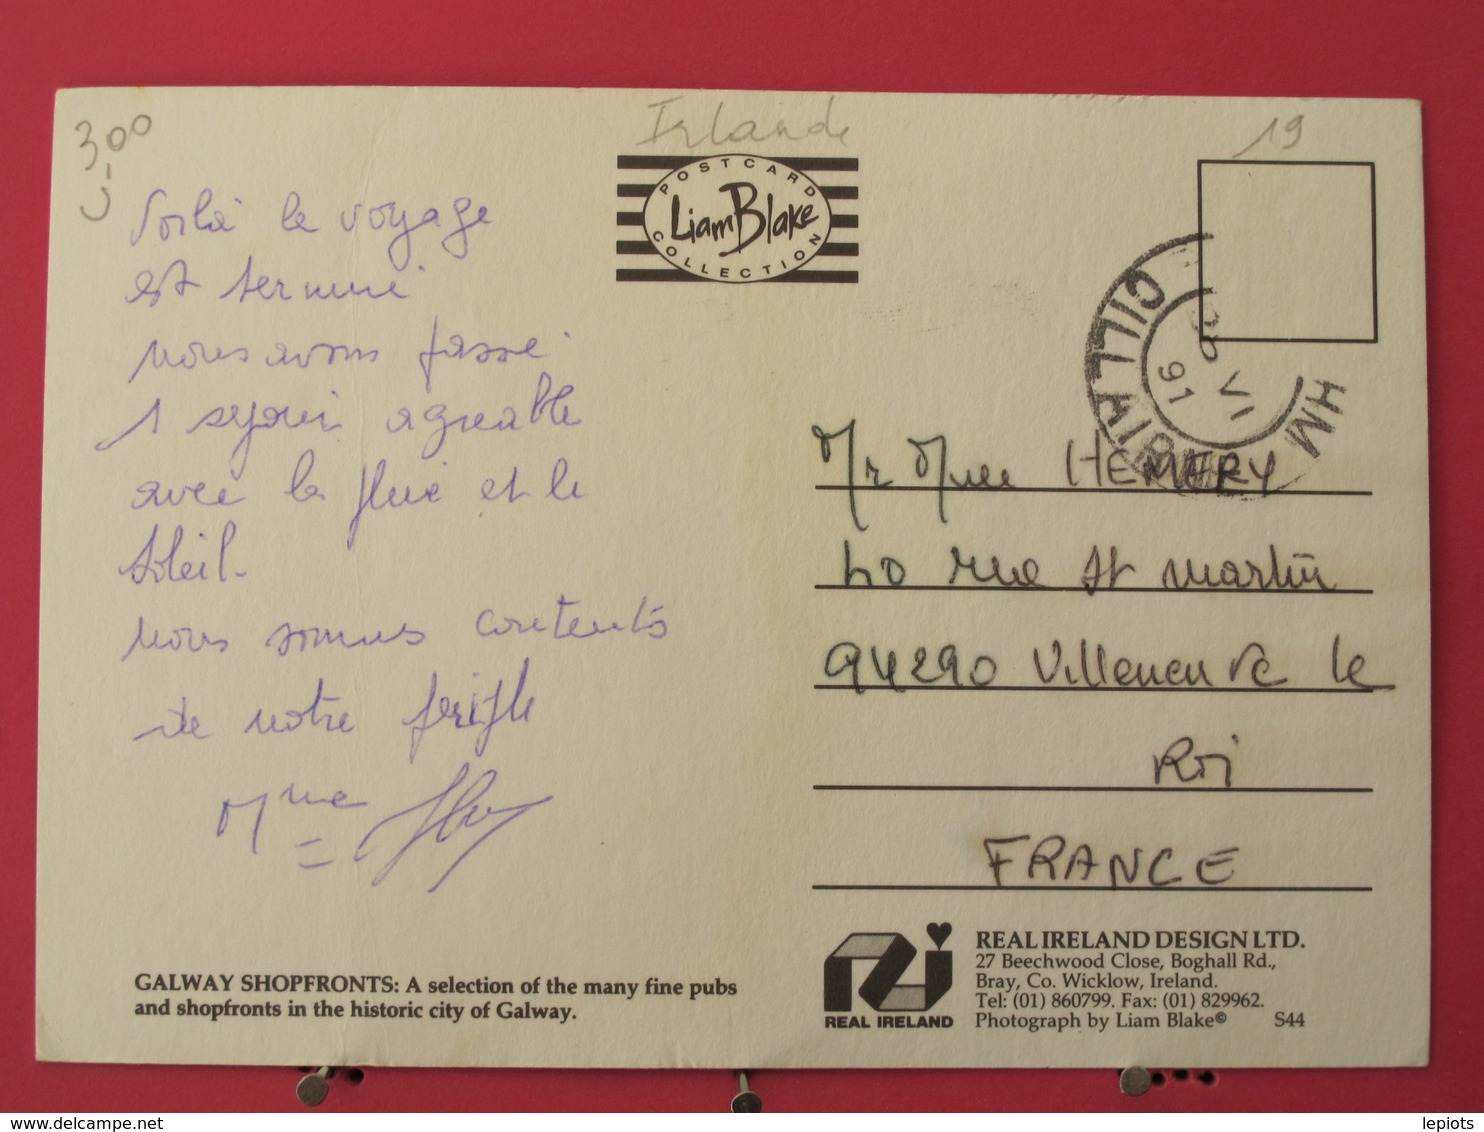 3,00
Irlande
19
POSTCARD
Liam Blake
COLLECTION
Voilà le voyage
est terminé
nous avons passé
1 séjour agréable
avec la pluie et le
soleil.
nous sommes contents
de notre périple
Mme
CILL AIRNE
26 VI
91
HM
Mr Mme HEMERY
40 rue St Martin
94290 Villeneuve le
Roi
FRANCE
GALWAY SHOPFRONTS: A selection of the many fine pubs
and shopfronts in the historic city of Galway.
REAL IRELAND
REAL IRELAND DESIGN LTD.
27 Beechwood Close, Boghall Rd.,
Bray, Co. Wicklow, Ireland.
Tel: (01) 860799. Fax: (01) 829962.
Photograph by Liam Blake© S44
delcampe.net
lepiots